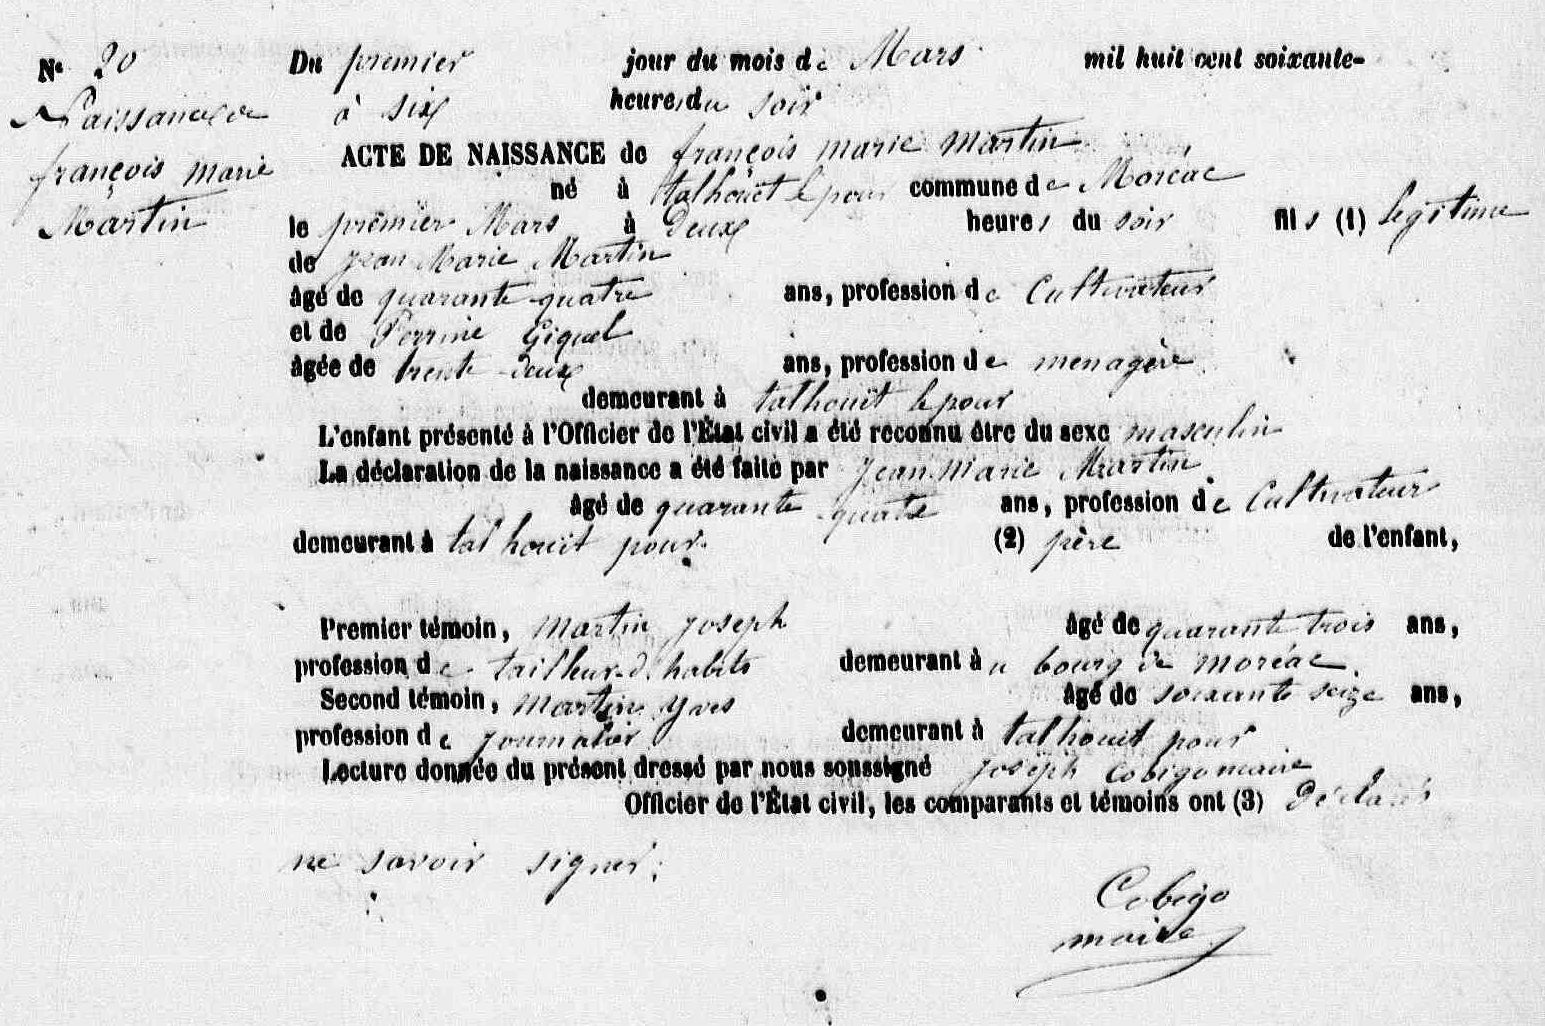 N° 20
Naissance de
françois marie
Martin
Du premier jour du mois de Mars mil huit cent soixante-
à six heures du soir
ACTE DE NAISSANCE de françois marie martin
né à talhouët le pour commune de Moréac
le premier Mars à deux heures du soir fils (1) légitime
de jean Marie Martin
âgé de quarante quatre ans, profession de Cultivateur
et de Perrine Giquel
âgée de trente deux ans, profession de menagère
demeurant à talhouët le pour
L'enfant présenté à l'Officier de l'État civil a été reconnu être du sexe masculin
La déclaration de la naissance a été faite par jean marie Martin
âgé de quarante quatre ans, profession de Cultivateur
demeurant à talhouët pour (2) père de l'enfant,
Premier témoin, martin joseph âgé de quarante trois ans,
profession de tailleur d'habits demeurant au bourg de moréac
Second témoin, martin yves âgé de soixante seize ans,
profession de journalier demeurant à talhouët pour
Lecture donnée du présent dressé par nous soussigné joseph Cobigo maire
Officier de l'État civil, les comparants et témoins ont (3) déclaré
ne savoir signer.
Cobigo
maire